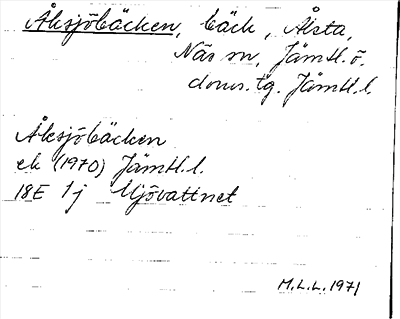 Åksjöbäcken, bäck, Ålsta,
Näs sn, Jämtl. ö.
doms. tg. Jämtl. l.
Åksjöbäcken
ek (1970) Jämtl. l.
18E 1j Mjövattnet
M.L.L. 1971